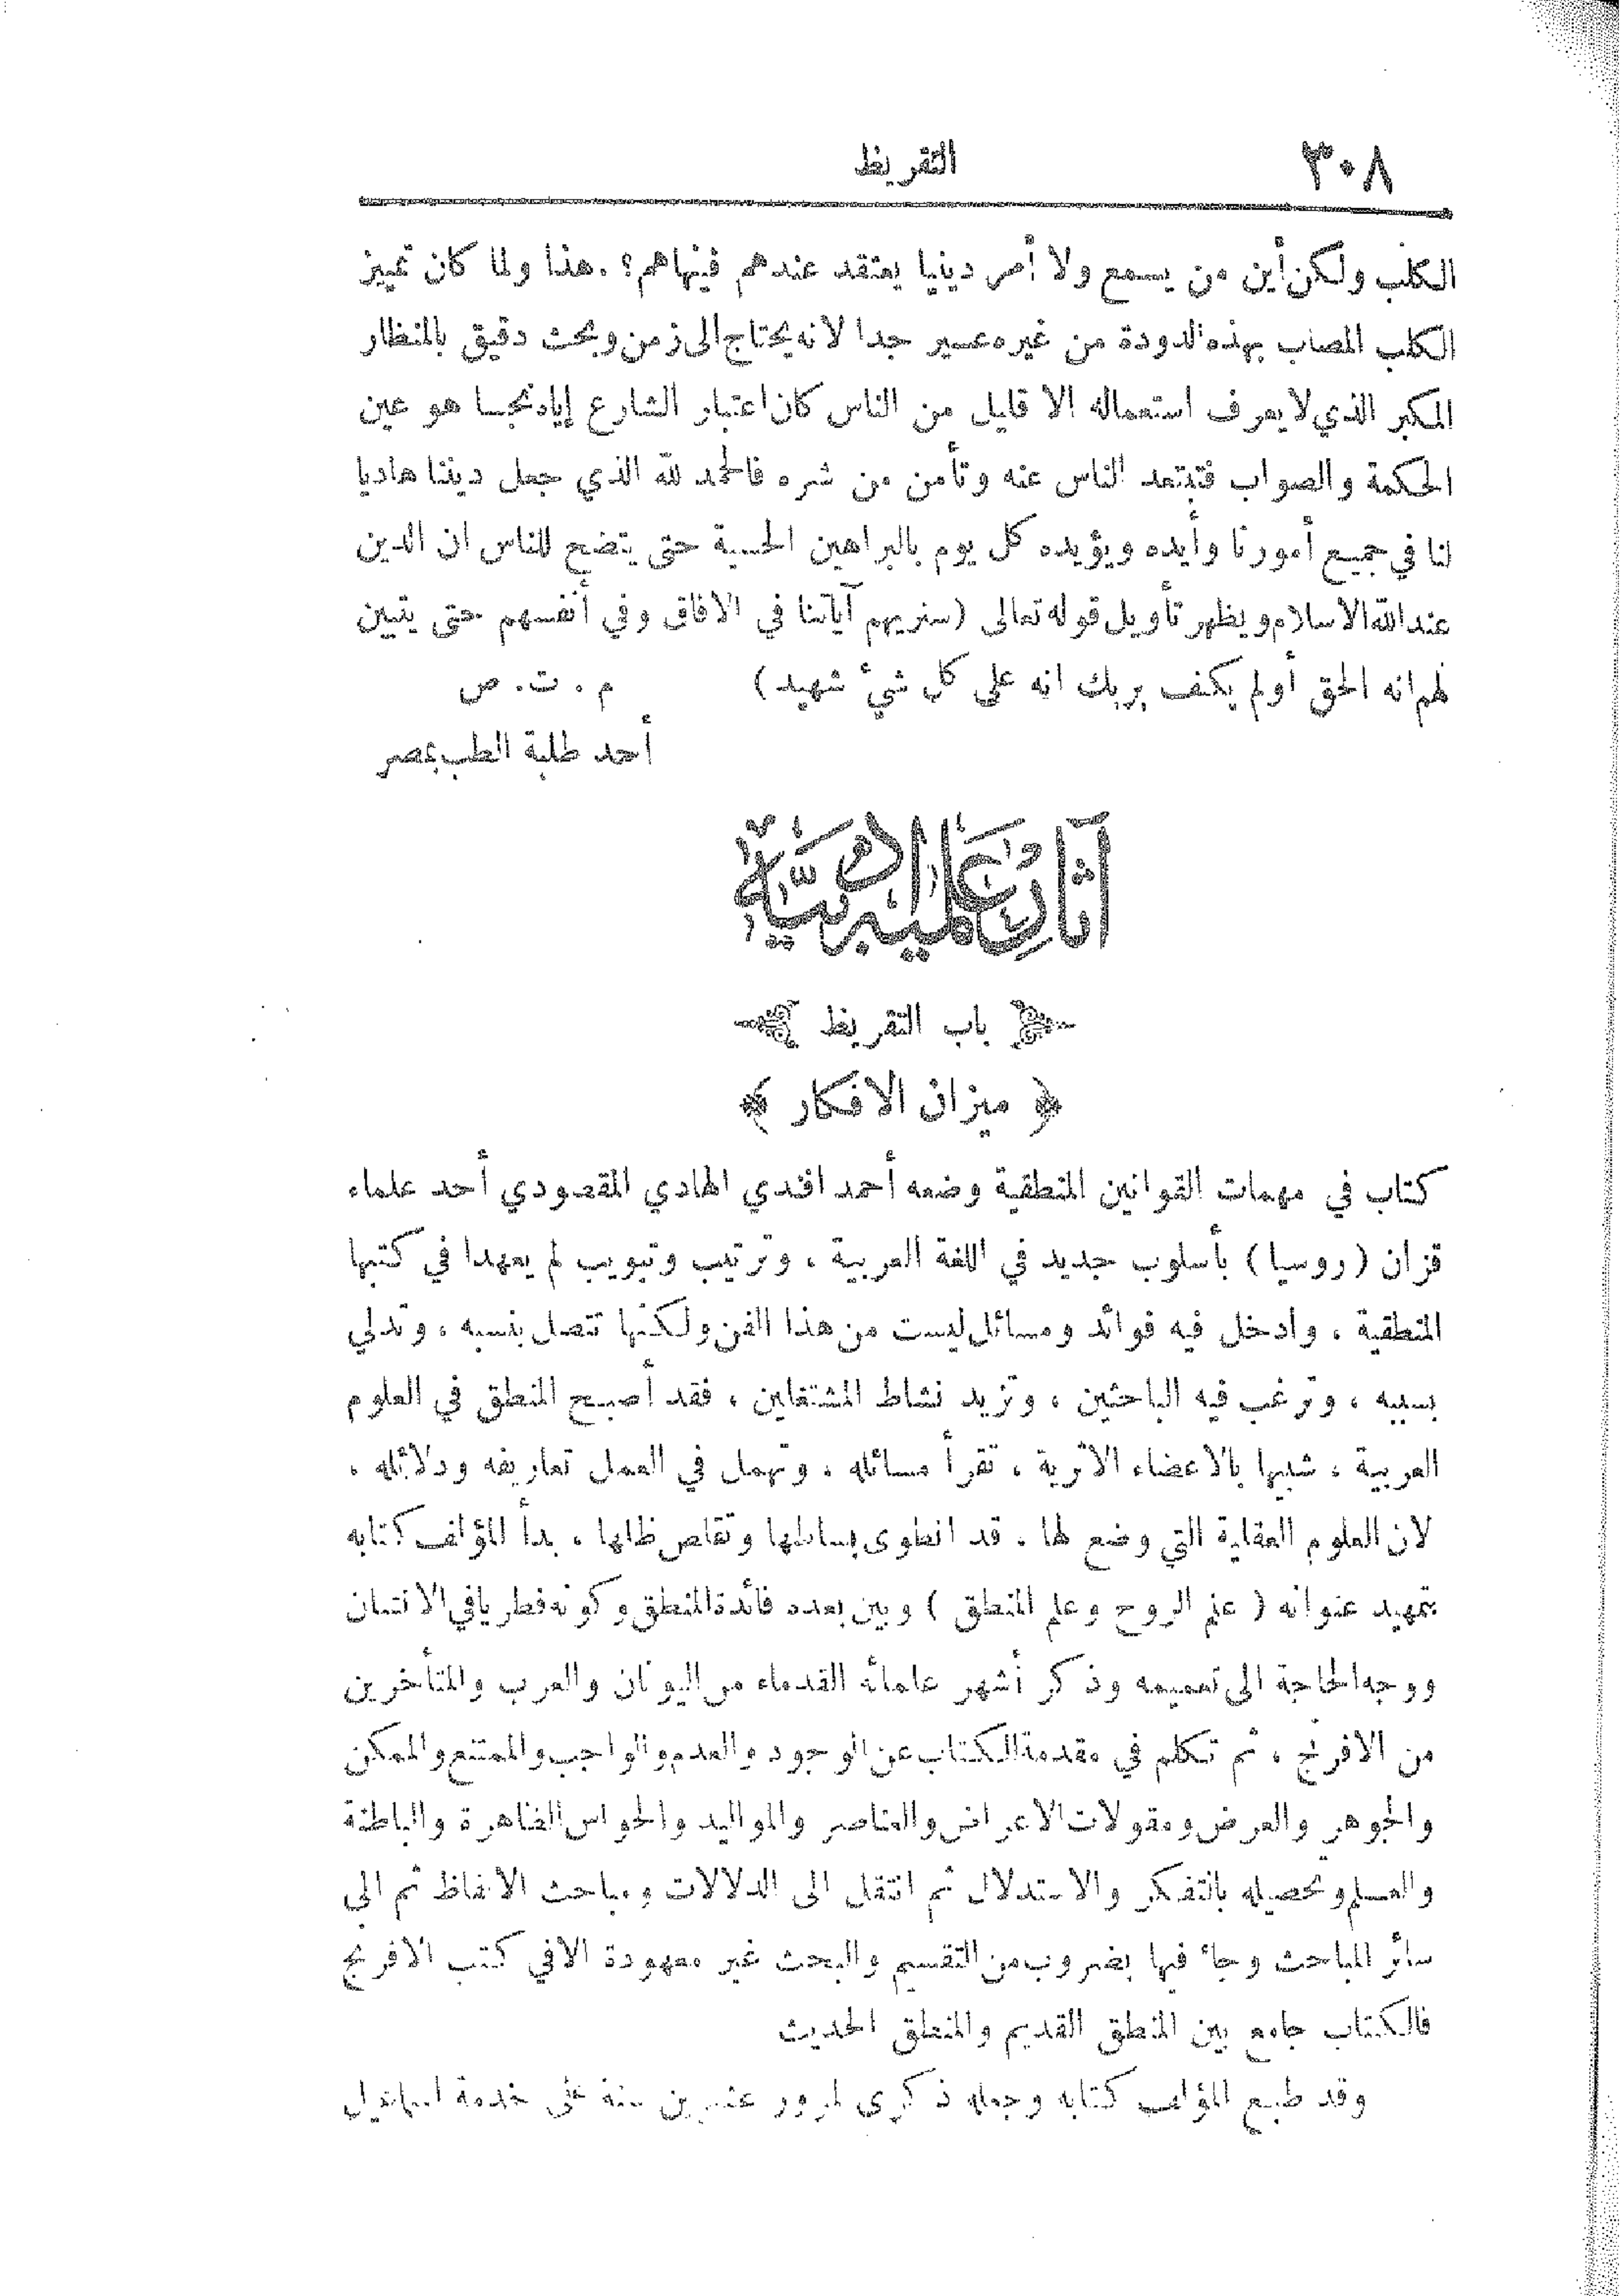 ٣٠٨
التقريظ
الكلب ولكن أين من يسمع ولا أمر دينيا يعتقد عندهم فينهاهم؟ . هذا ولما كان تمييز
الكلب المصاب بهذه الدودة من غيره عسير جدا لانه يحتاج الى زمن وبحث دقيق بالمنظار
المكبر الذي لا يعرف استعماله الا قليل من الناس كان اعتبار الشارع إياه نجسا هو عين
الحكمة والصواب فتبتعد الناس عنه وتأمن من شره فالحمد لله الذي جعل ديننا هاديا
لنا في جميع أمورنا وأيده ويؤيده كل يوم بالبراهين الحسية حتى يتضح للناس ان الدين
عند الله الاسلام ويظهر تأويل قوله تعالى (سنريهم آياتنا في الآفاق وفي أنفسهم حتى يتبين
لهم انه الحق أولم يكف بربك انه على كل شيء شهيد) م . ت . ص
أحد طلبة الطب بمصر
آثار علمية أدبية
باب التقريظ
﴿ ميزان الافكار ﴾
كتاب في مهمات القوانين المنطقية وضعه أحمد افندي الهادي المقصودي أحد علماء
قزان (روسيا) بأسلوب جديد في اللغة العربية ، وترتيب وتبويب لم يعهدا في كتبها
المنطقية ، وادخل فيه فوائد ومسائل ليست من هذا الفن ولكنها تتصل بنسبه ، وتدلي
بسببه ، وترغب فيه الباحثين ، وتزيد نشاط المشتغلين ، فقد أصبح المنطق في العلوم
العربية ، شبيها بالاعضاء الاثرية ، تقرأ مسائله ، وتهمل في العمل تعاريفه ودلائله ،
لان العلوم العقلية التي وضع لها ، قد انطوى بساطها وتقلص ظلها ، بدأ المؤلف كتابه
بتمهيد عنوانه (علم الروح وعلم المنطق) وبين بعده فائدة المنطق وكونه فطريا في الانسان
ووجه الحاجة الى تعميمه وذكر أشهر علمائه القدماء من اليونان والعرب والمتأخرين
من الافرنج ، ثم تكلم في مقدمة الكتاب عن الوجود والعدم والواجب والممتنع والممكن
والجوهر والعرض ومقولات الاعراض والعناصر والمواليد والحواس الظاهرة والباطنة
والعلم وتحصيله بالتفكر والاستدلال ثم انتقل الى الدلالات ومباحث الالفاظ ثم الى
سائر المباحث وجاء فيها بضروب من التقسيم والبحث غير معهودة الا في كتب الافرنج
فالكتاب جامع بين المنطق القديم والمنطق الحديث
وقد طبع المؤلف كتابه وجعله ذكرى لمرور عشرين سنة على خدمة اسماعيل